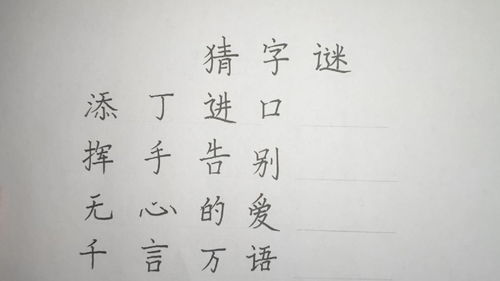 猜字谜
添丁进口
挥手告别
无心的爱
千言万语